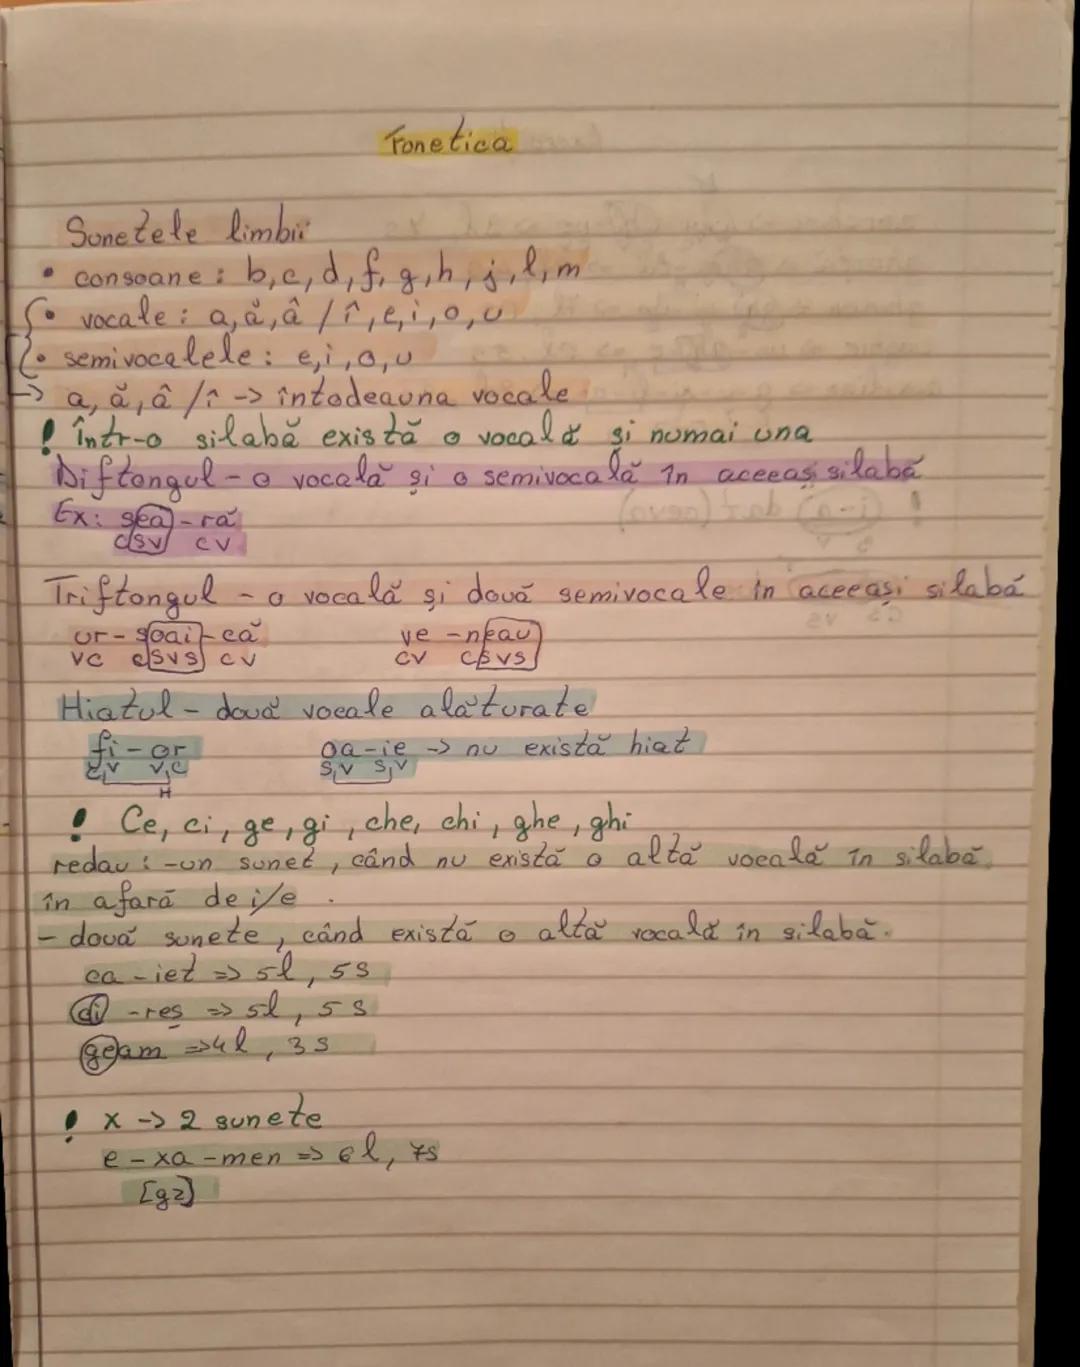 Fonetica
Sunetele limbii
• consoane: b, c, d, f, g, h, j, l, m
• vocale: a, ă, â / î, e, i, o, u
• semivocalele: e, i, o, u
-> a, ă, â / î -> întodeauna vocale
! într-o silabă există o vocală și numai una
Diftongul - o vocală și o semivocală în aceeaș silabă
Ex: sea - ră
CSV CV
Triftongul - o vocală și două semivocale în aceeași silabă
ur - soai - că ve - neau
VC CSVS CV CV CSVS
Hiatul - două vocale alăturate
fi - or oa - ie -> nu există hiat
C,V V,C S,V S,V
H
! Ce, ci, ge, gi, che, chi, ghe, ghi
redau: - un sunet, când nu există o altă vocală în silabă
în afară de i/e.
- două sunete, când există o altă vocală în silabă.
ca - iet => 5l, 5s
ci - reș => 5l, 5s
geam => 4l, 3s
! x -> 2 sunete
e - xa - men => 6l, 7s
[gz]